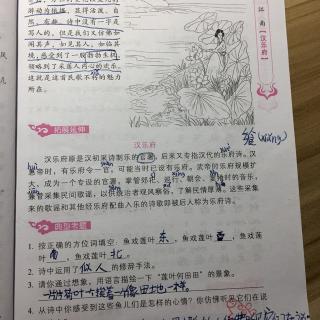 游动为描摹，显得活泼、自
然、有趣。诗中没有一字是
写人的，但是我们又仿佛如
闻其声，如见其人，如临其
境，感受到了一股勃勃生机，
领略到了采莲人内心的欢乐，
这就是这首民歌不朽的魅力
所在。
江南
【汉乐府】
拓展延伸
汉乐府
汉乐府原是汉初采诗制乐的官署，后来又专指汉代的乐府诗。汉
惠帝时，有乐府令一官，可能当时已设有乐府。武帝时乐府规模扩
大，成为一个专设的官署，掌管郊祀、巡行、朝会、宴飨时的音乐，
兼管采集民间歌谣，以供统治者观风察俗，了解民情厚薄。这些采集
来的歌谣和其他经乐府配曲入乐的诗歌即被后人称为乐府诗。
典型考题
1. 按正确的方位词填空：鱼戏莲叶 东，鱼戏莲叶 西，鱼戏莲
叶 南，鱼戏莲叶 北。
2. 诗中运用了 似人 的修辞手法。
3. 请你通过想象，用语言描绘一下“莲叶何田田”的景象。
4. 从诗中你感受到这些鱼儿们是怎样的心情？你仿佛听见它们在说